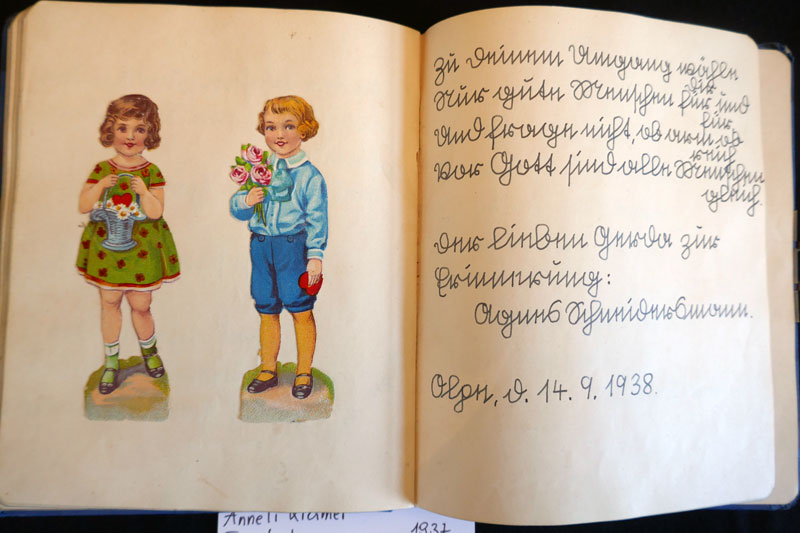 Zu deinem Umgang wähle
dir
Nur gute Menschen für und
für
Und frage nicht, ob arm ob
reich
Vor Gott sind alle Menschen
gleich.
Der lieben Gerda zur
Erinnerung:
Agnes Schneidersmann.
Olpe, d. 14. 9. 1938.
Anneli
1937